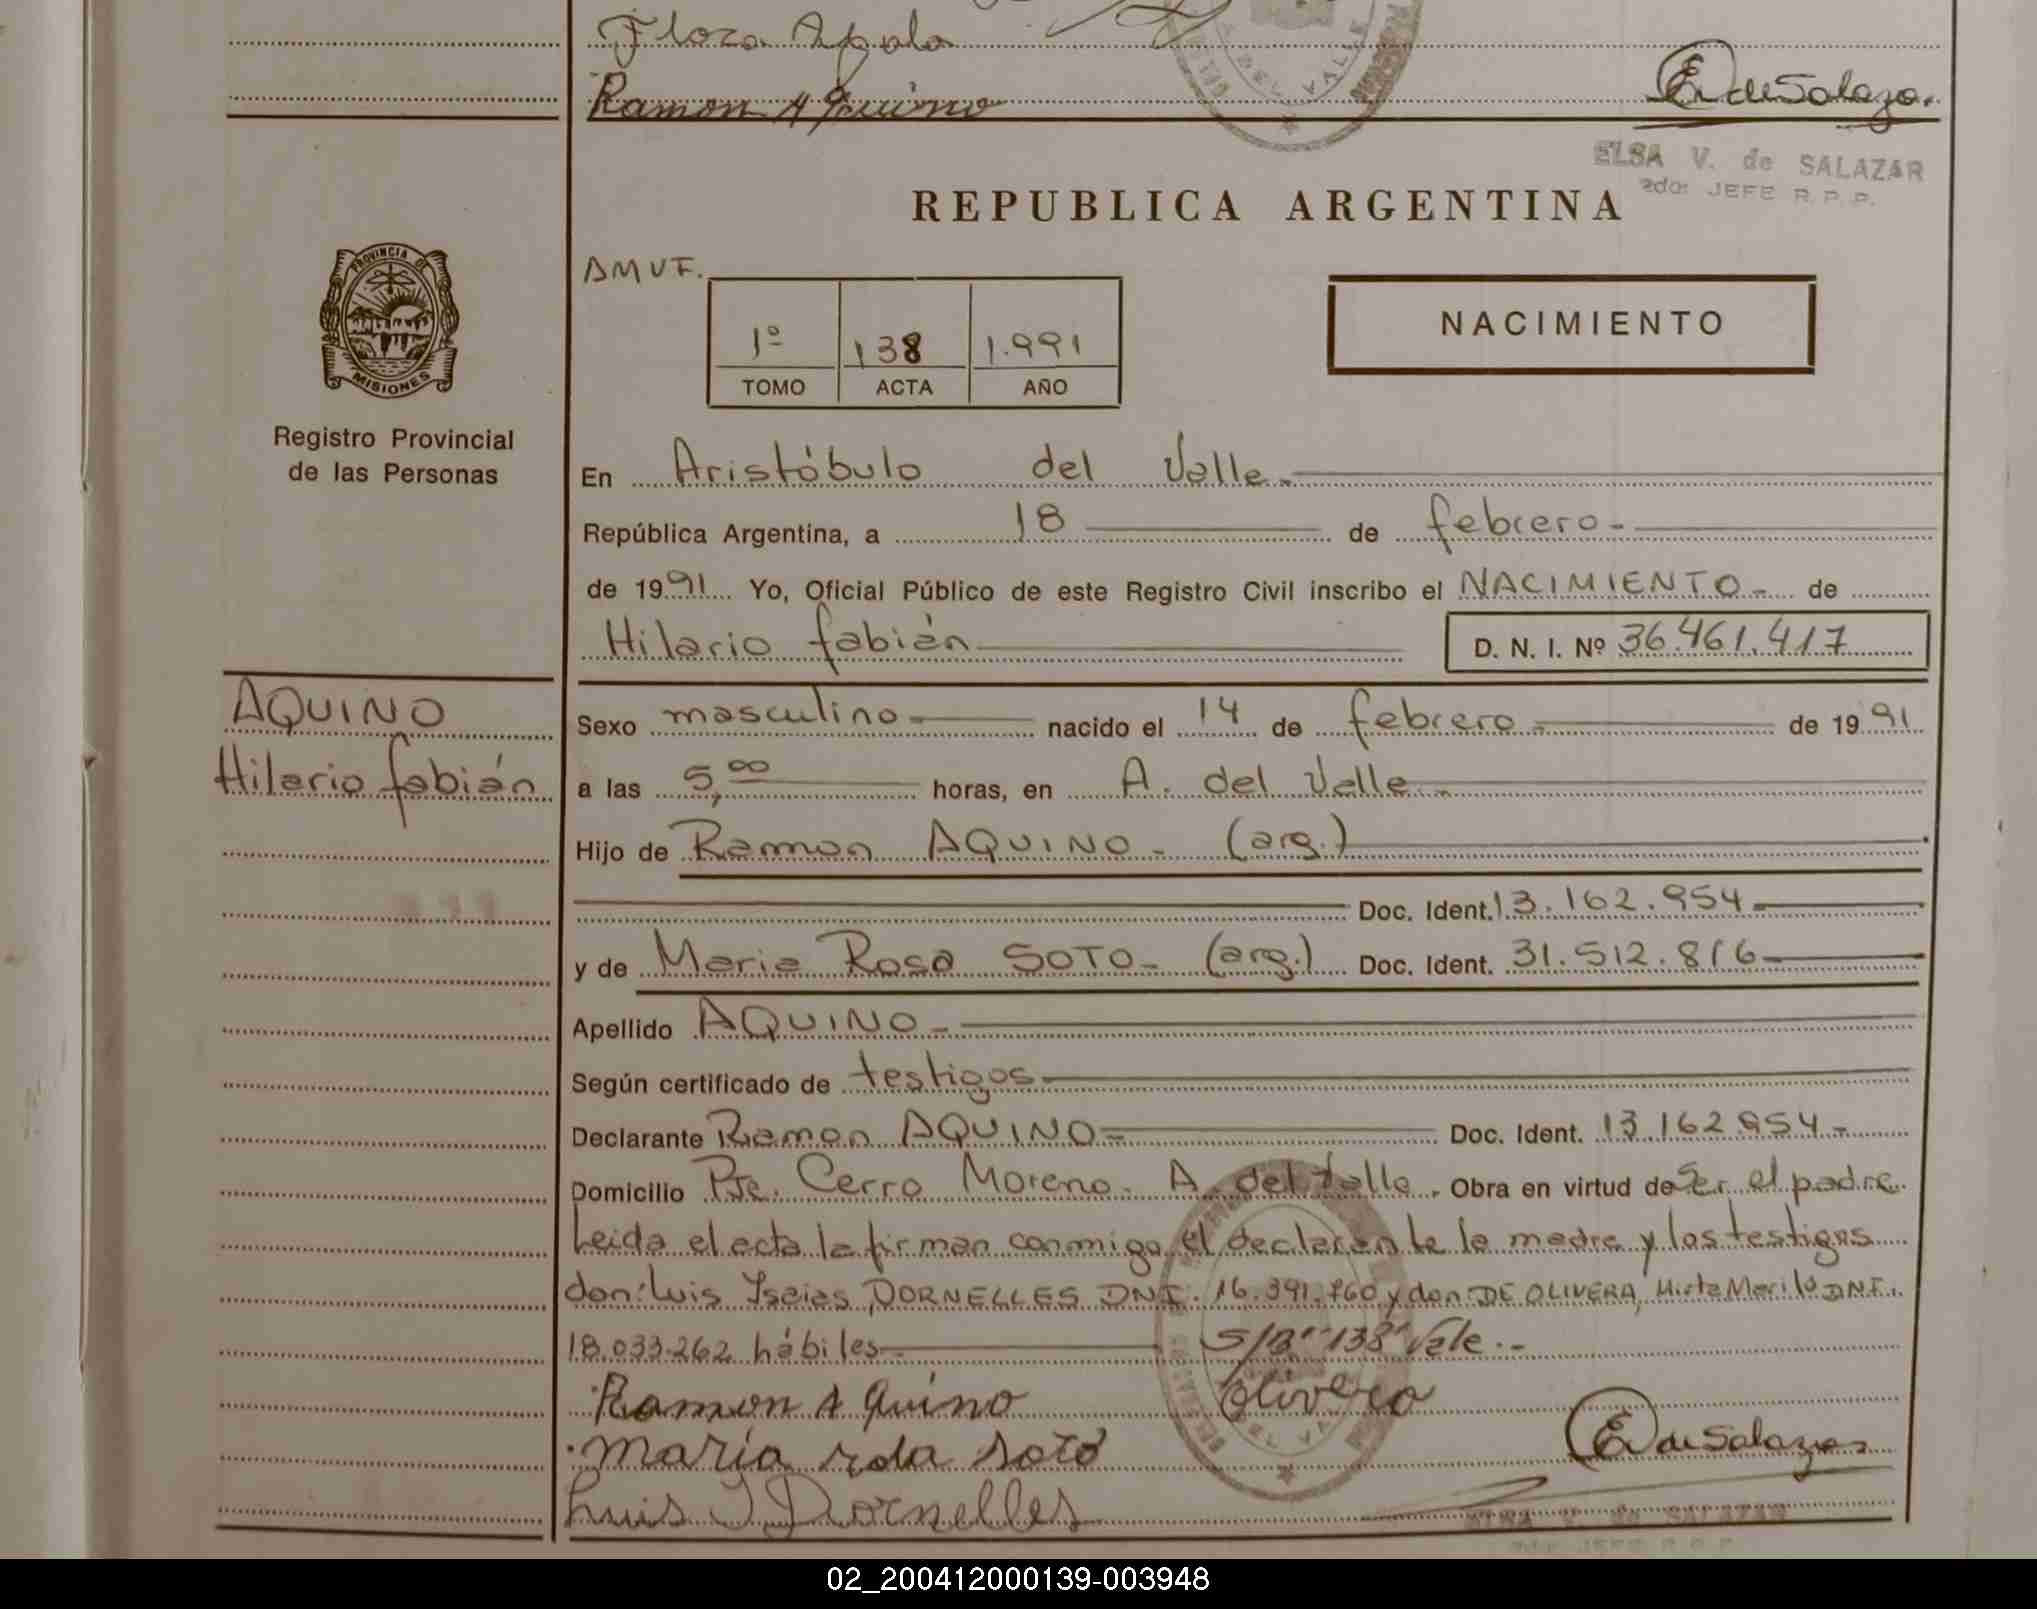 Flora Ayala
Ramon Aquino
E de Salazar
ELSA V. de SALAZAR
2do. JEFE R.P.P.
DEL VALLE
REPUBLICA ARGENTINA
PROVINCIA DE
MISIONES
Registro Provincial
de las Personas
AMUF.
1º 138 1.991
TOMO ACTA AÑO
NACIMIENTO
En Aristóbulo del Valle.-
República Argentina, a 18 de febrero-
de 1991 Yo, Oficial Público de este Registro Civil inscribo el NACIMIENTO- de
Hilario fabián D. N. I. Nº 36.461.417
AQUINO
Hilario fabián
Sexo masculino- nacido el 14 de febrero- de 1991
a las 5,00 horas, en A. del Valle-
Hijo de Ramon AQUINO- (arg.)
Doc. Ident. 13.162.954-
y de Maria Rosa SOTO- (arg.) Doc. Ident. 31.512.816-
Apellido AQUINO-
Según certificado de testigos-
Declarante Ramon AQUINO- Doc. Ident. 13.162.954-
Domicilio Pje. Cerro Moreno. A. del Valle. Obra en virtud de Ser el padre
Leida el acta la firman conmigo el declarante la madre y los testigos
don: Luis Isaias DORNELLES DNI. 16.391.760 y don: DE OLIVERA, Mirta Marilú DNI.
18.033.262 hábiles- S/B "138" Vale.-
Ramon Aquino Olivera
maría rosa soto E de Salazar
Luis I Dornelles
ELSA V. de SALAZAR
2do. JEFE R.P.P.
02_200412000139-003948